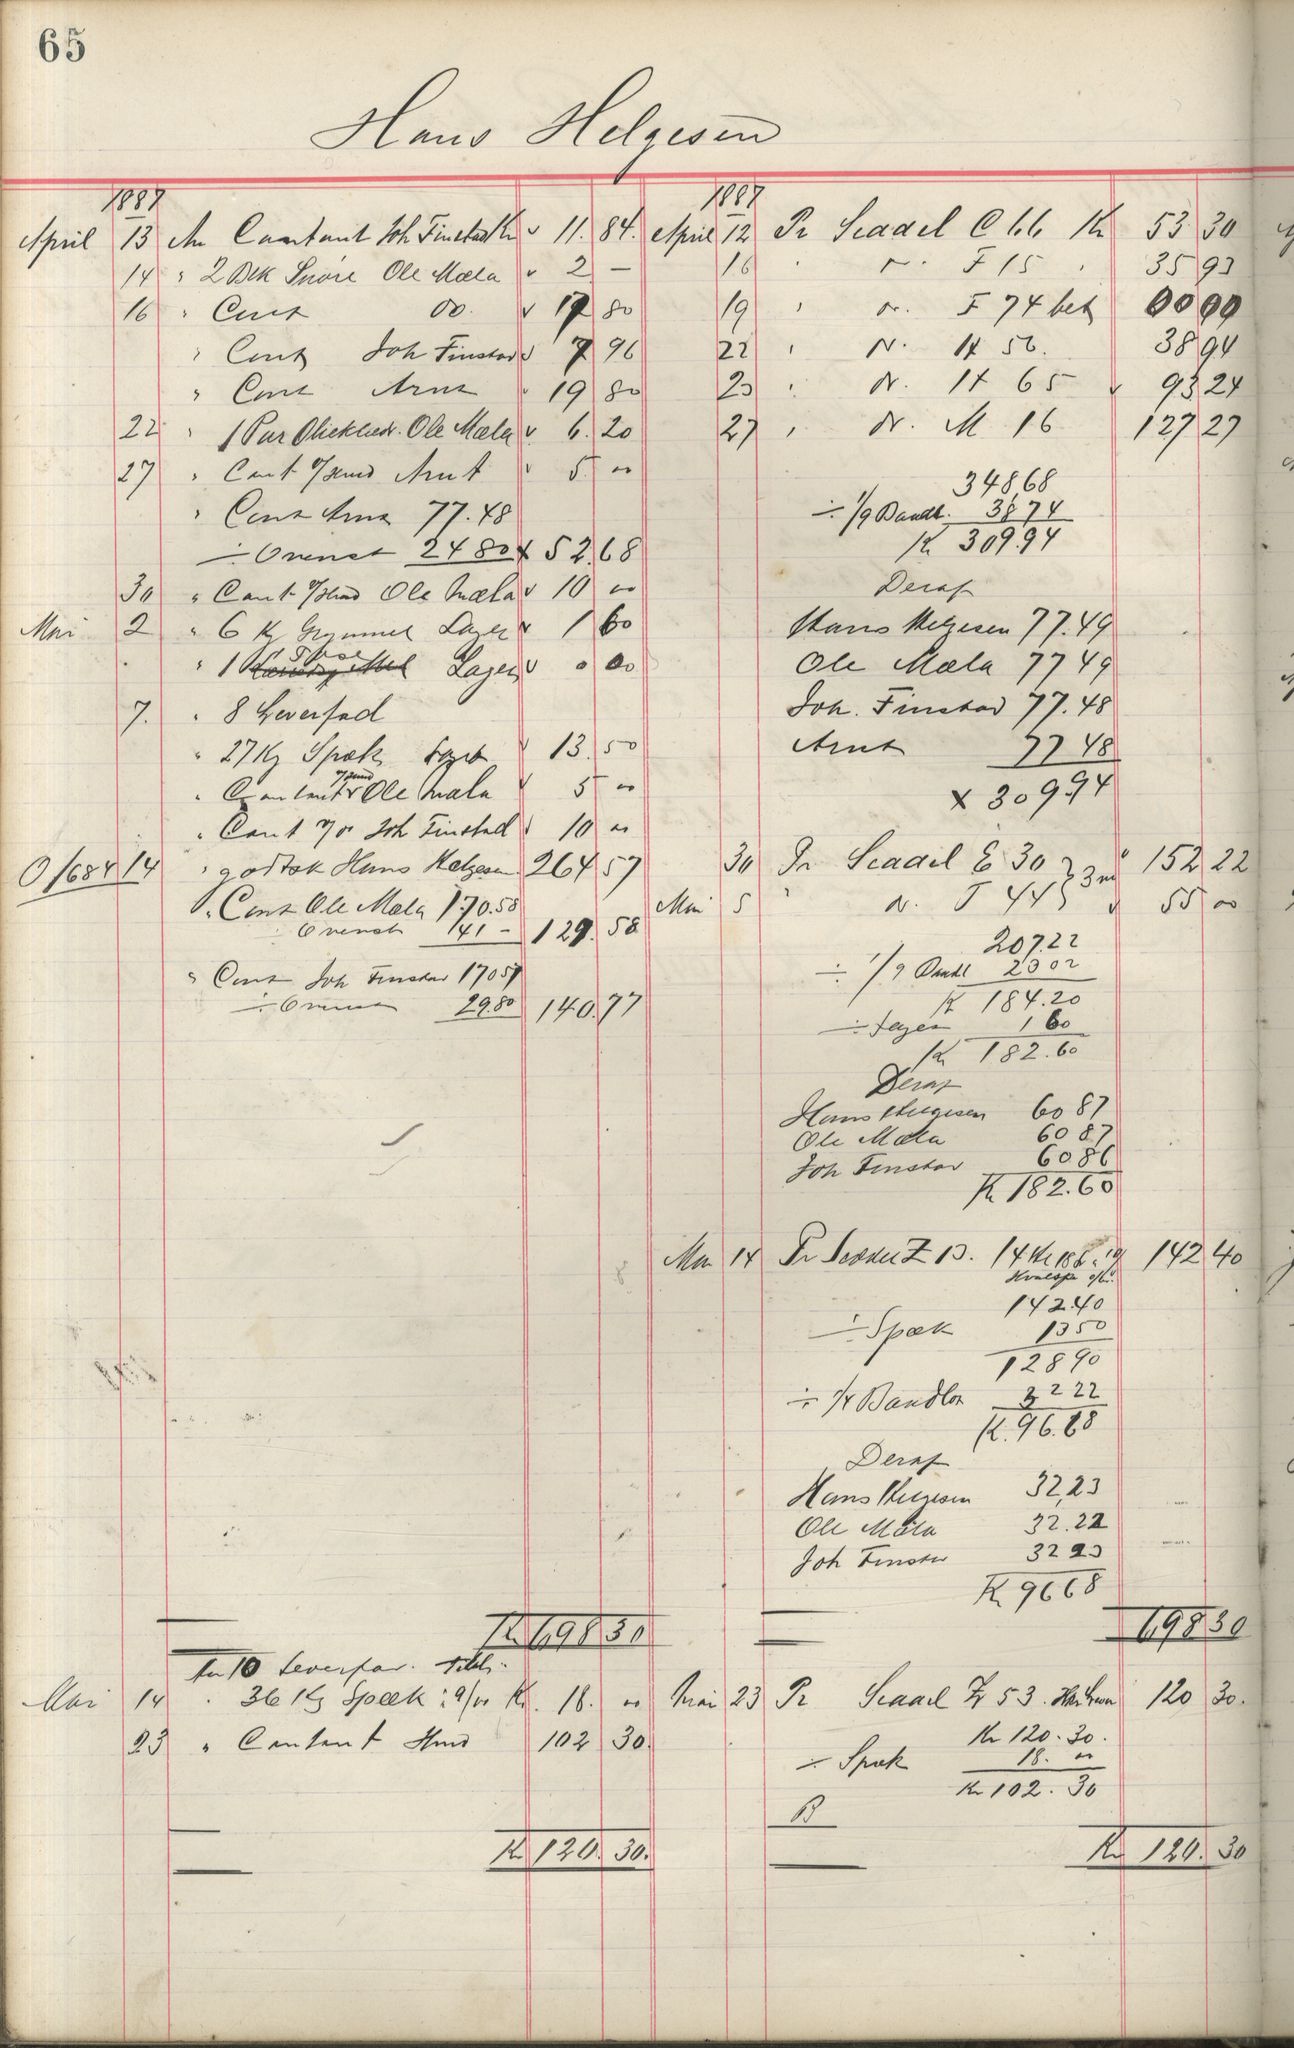 65
Hans Helgesen
1887
April 13 An Contant Joh Finstad Kr 11.84.
14 " 2 Bek Snøre Ole Mæla 2 —
16 " Cont do. 17 80
" Cont Joh Finstad 7 96
" Cont Arnt 19 80
22 " 1 Par Ole Mæla 6.20
27 " Cont Arnt 5.00
" Cont Arnt 77.48
÷ Ovenst 24 80 52.68
30 " Cont Ole Mæla 10 00
Mai 2 " 6 Kg Lager 1 60
" 1 Lager 0 00
7. " 8 Leverfad
" 27 Kg Spæk 13.50
" Contant Ole Mæla 5 00
" Cont Joh Finstad 10 00
O/684 14 " godtsk Hans Helgesen 264 57
" Cont Ole Mæla 170.58
Ovenst 41 — 129.58
" Cont Joh Finstad 170 57
÷ Ovenst 29.80 140.77
Kr 698 30
An 10 Leverfad.
Mai 14 " 36 Kg Spæk Kr. 18. 00
23 " Contant 102 30.
Kr 120. 30.
1887
April 12 Pr Seddel C 66 Kr 53 30
16 " " F 15 " 35 93
19 " " F 74 bet 00 00
22 " " H 56. 38 94
23 " " H 65 93 24
27 " " M 16 127 27
348,68
÷ 1/9 Baadl. 38 74
Kr 309.94
Deraf
Hans Helgesen 77.49
Ole Mæla 77 49
Joh. Finstad 77.48
Arnt 77 48
x 309.94
30 Pr Seddel E 30 152 22
Mai 5 " " J 44 55 00
207.22
÷ 1/9 Baadl 23 02
Kr 184.20
÷ Lager 1 60
Kr 182.60
Deraf
Hans Helgesen 60 87
Ole Mæla 60 87
Joh Finstad 60 86
Kr 182.60
Mai 14 Pr Seddel Z 13. 142 40
142.40
÷ Spæk 13 50
128 90
÷ 1/4 Baadlon 32 22
Kr. 96.68
Deraf
Hans Helgesen 32,23
Ole Mæla 32.22
Joh Finstad 32 23
Kr 96 68
698 30
Mai 23 Pr Seddel 53. 120 30.
Kr 120.30.
÷ Spæk 18. 00
Kr 102. 30
B
Kr 120. 30